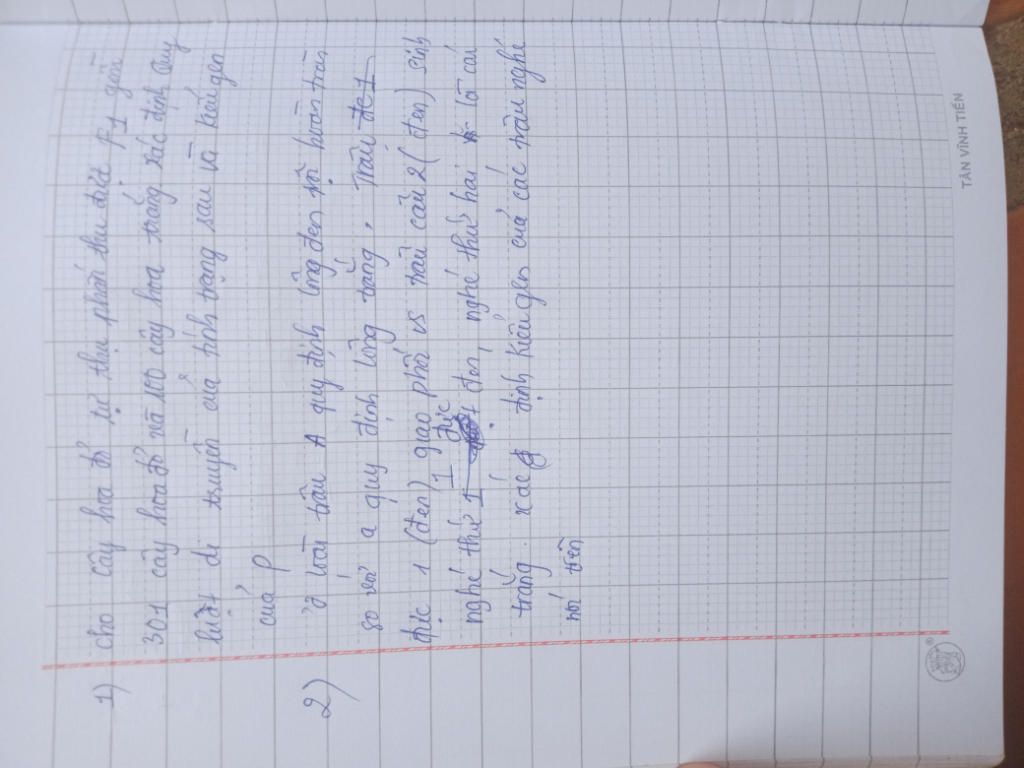 1) cho cây hoa đỏ tự thụ phấn thu được F1 gồm
301 cây hoa đỏ và 100 cây hoa trắng xác định quy
luật di truyền của tính trạng sau và kiểu gen
của P
2) Ở loài trâu A quy định lông đen trội hoàn toàn
so với a quy định lông trắng, Trâu
đực 1 (đen) giao phối vs trâu cái 2 (đen) sinh
nghé thứ 1 đực đen, nghé thứ hai là cái
trắng. xác định kiểu gen của các trâu nghé
nói trên
TÂN VĨNH TIẾN